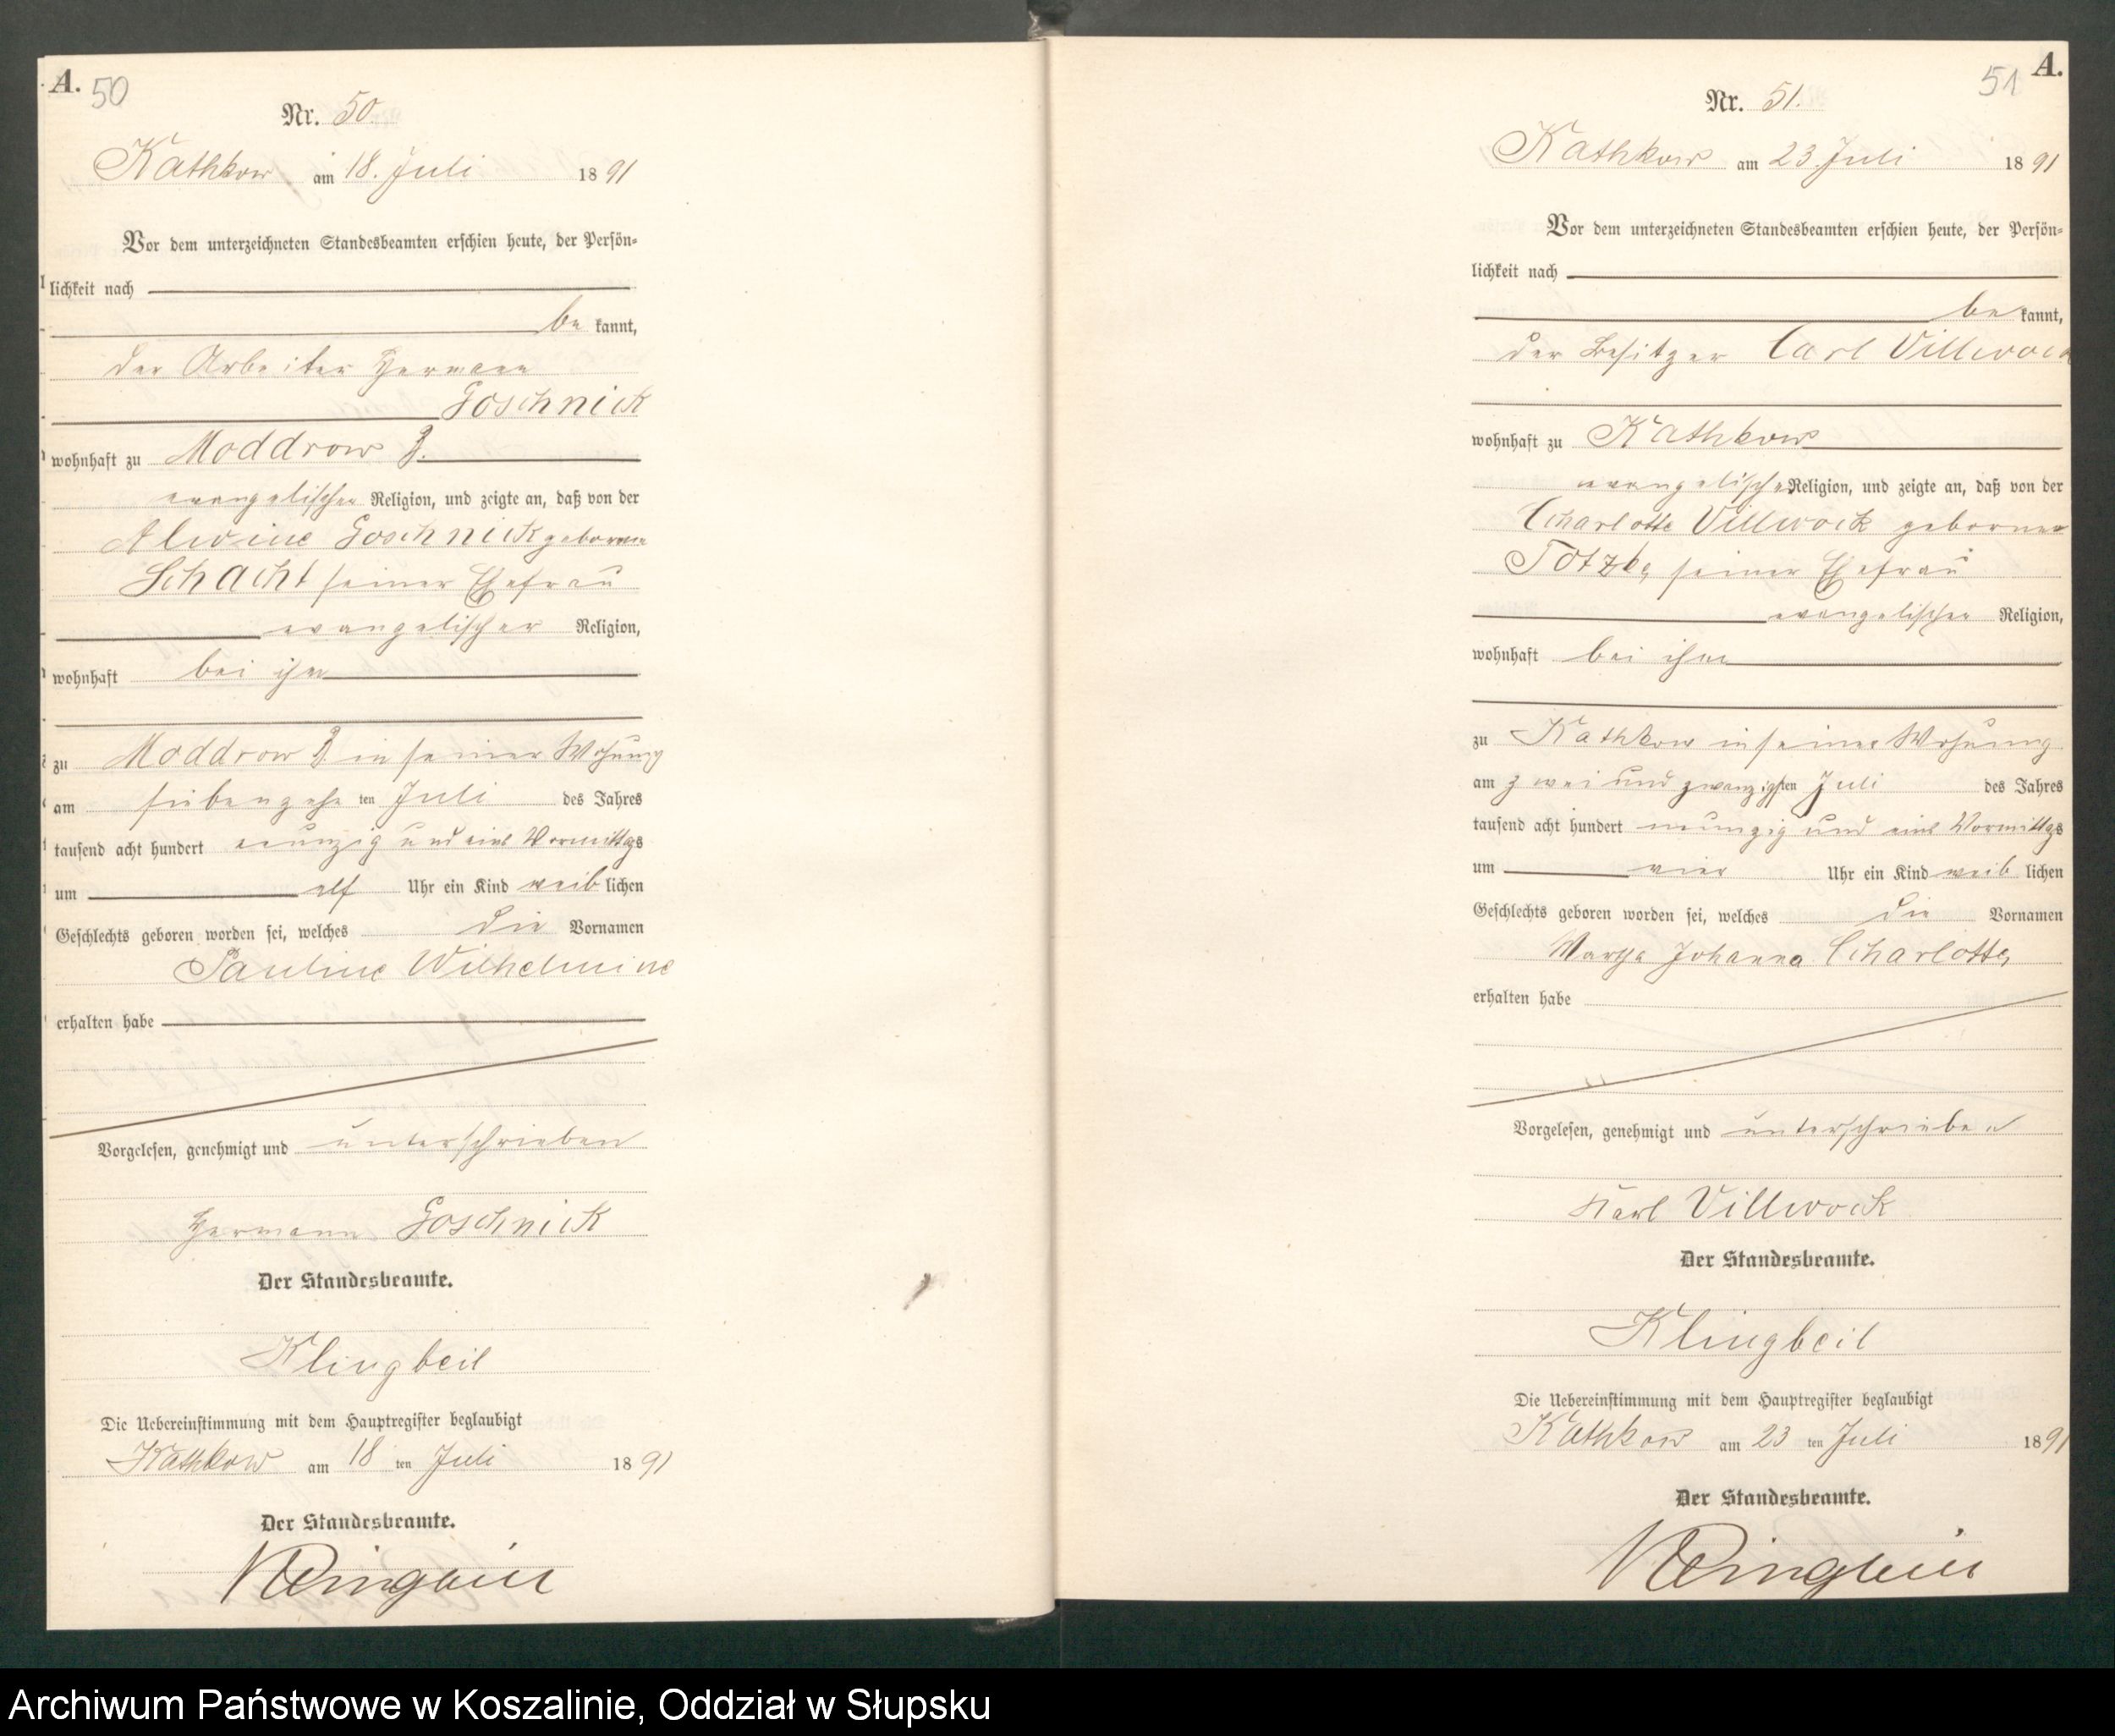 A.
50
Nr. 50.
Kathkow am 18. Juli 1891
Vor dem unterzeichneten Standesbeamten erschien heute, der Persön-
lichkeit nach
be kannt,
der Arbeiter Hermann
Goschnick
wohnhaft zu Moddrow B.
evangelischer Religion, und zeigte an, daß von der
Alwine Goschnick geborne
Schacht seiner Ehefrau
evangelischer Religion,
wohnhaft bei ihm
zu Moddrow B. in seiner Wohnung
am siebenzehn ten Juli des Jahres
tausend acht hundert neunzig und eins Vormittgs
um elf Uhr ein Kind weib lichen
Geschlechts geboren worden sei, welches die Vornamen
Pauline Wilhelmine
erhalten habe
Vorgelesen, genehmigt und unterschrieben
Hermann Goschnick
Der Standesbeamte.
Klingbeil
Die Uebereinstimmung mit dem Hauptregister beglaubigt
Kathkow am 18 ten Juli 1891
Der Standesbeamte.
Klingbeil
A.
51
Nr. 51.
Kathkow am 23. Juli 1891
Vor dem unterzeichneten Standesbeamten erschien heute, der Persön-
lichkeit nach
be kannt,
der Besitzer Carl Villwock
wohnhaft zu Kathkow
evangelischer Religion, und zeigte an, daß von der
Charlotte Villwock geborne
Totzke, seiner Ehefrau
evangelischer Religion,
wohnhaft bei ihm
zu Kathkow in seiner Wohnung
am zwei und zwanzigsten Juli des Jahres
tausend acht hundert neunzig und eins Vormittgs
um vier Uhr ein Kind weib lichen
Geschlechts geboren worden sei, welches die Vornamen
Johanna Charlotte
erhalten habe
Vorgelesen, genehmigt und unterschrieben
Karl Villwock
Der Standesbeamte.
Klingbeil
Die Uebereinstimmung mit dem Hauptregister beglaubigt
Kathkow am 23 ten Juli 1891
Der Standesbeamte.
Klingbeil
Archiwum Państwowe w Koszalinie, Oddział w Słupsku